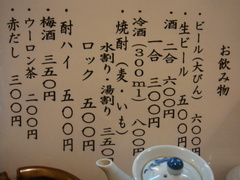 お飲み物
ビール(大びん) 六〇〇円
生ビール 五〇〇円
酒 二合 六〇〇円
一合 三〇〇円
冷酒(300ml) 八〇〇
焼酎(麦・いも)
水割り、湯割り 三五
ロック 五〇〇
酎ハイ 五〇〇円
梅酒 三五〇円
ウーロン茶 二〇〇円
赤だし 三〇〇円